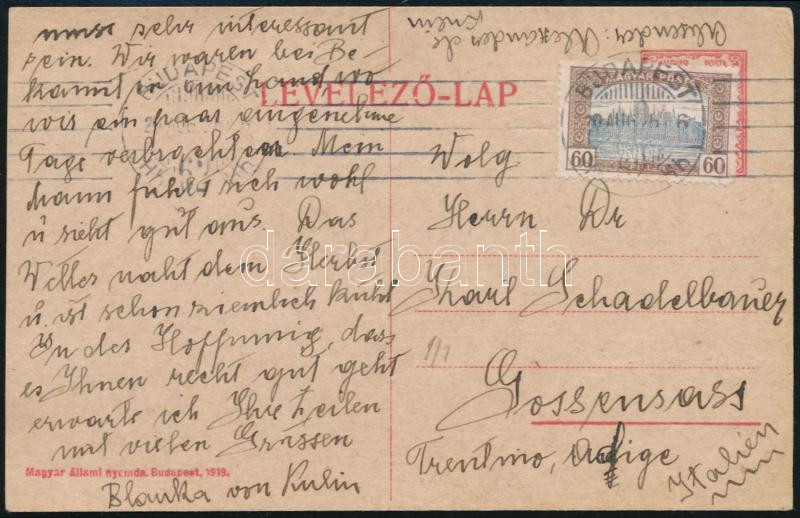 muss sehr interessant
sein. Wir waren bei Be-
kannt in am Land wo
wir ein paar angenehme
Tage verbrachten. Mein
Mann fühlt sich wohl
u sieht gut aus. Das
Wetter naht dem Herbst
u. ist schon ziemlich kühl
In der Hoffnung, das
es Ihnen recht gut geht
erwarte ich Ihre Zeilen
mit vielen Grüssen
Blanka von Kulin
Magyar állami nyomda. Budapest, 1919.
Absender: Alexander de
Kulin
LEVELEZŐ-LAP
MAGYAR POSTA
60 60
BUDAPEST
Wolg
Herrn Dr
Karl Schadelbauer
1/1
Gossensass
Trentino, Adige
Italien
darabanth